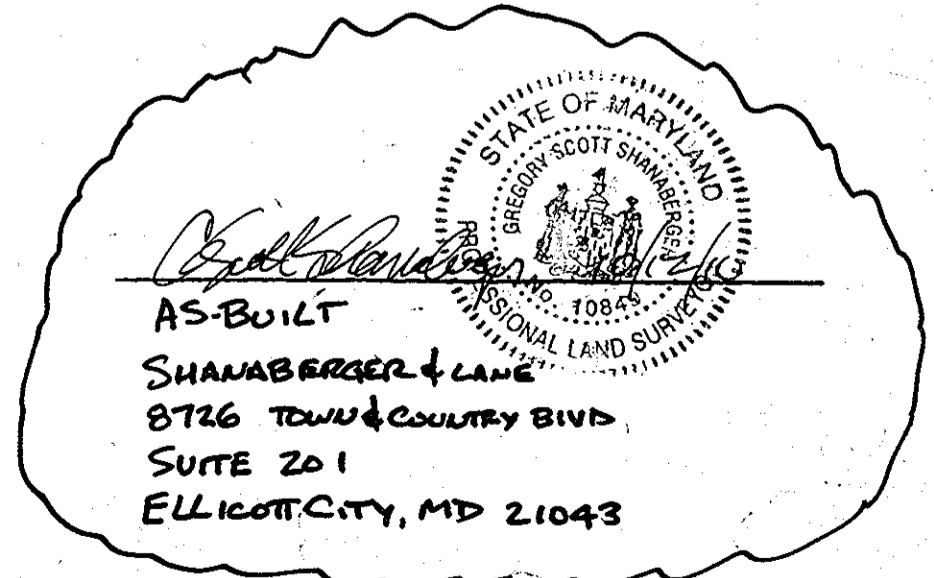 STATE OF MARYLAND
GREGORY SCOTT SHANABERGER
No. 10849
PROFESSIONAL LAND SURVEYOR
AS-BUILT
SHANABERGER & LANE
8726 TOWN & COUNTRY BLVD
SUITE 201
ELLICOTT CITY, MD 21043